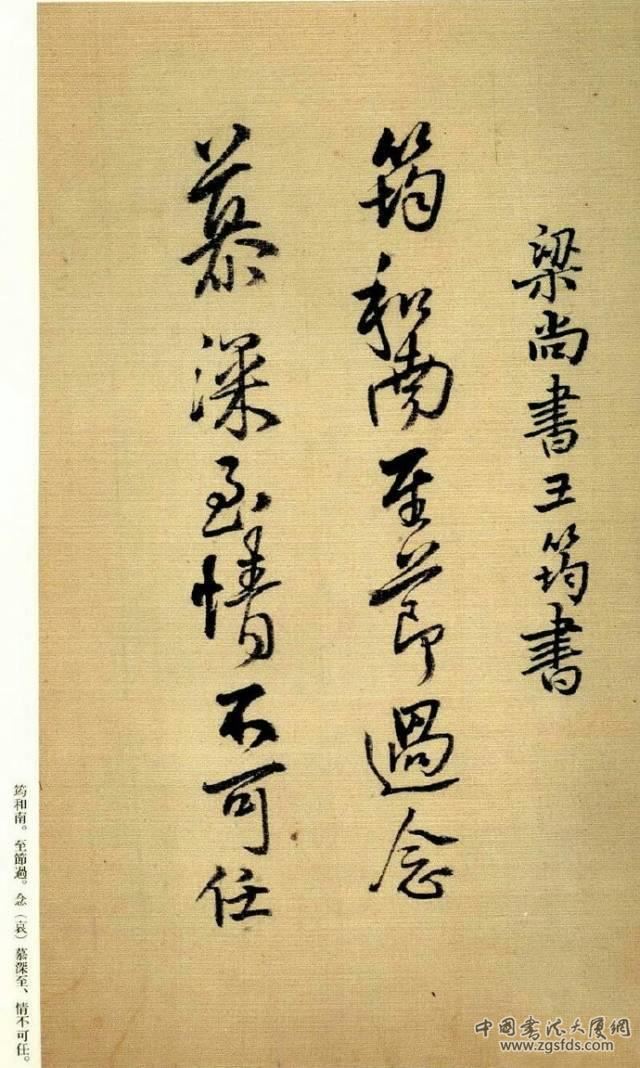 梁尚書王筠書
筠和南至節過念
慕深至情不可任
筠和南。至節過。念（哀）慕深至、情不可任。
中國書法大厦網
www.zgsfds.com